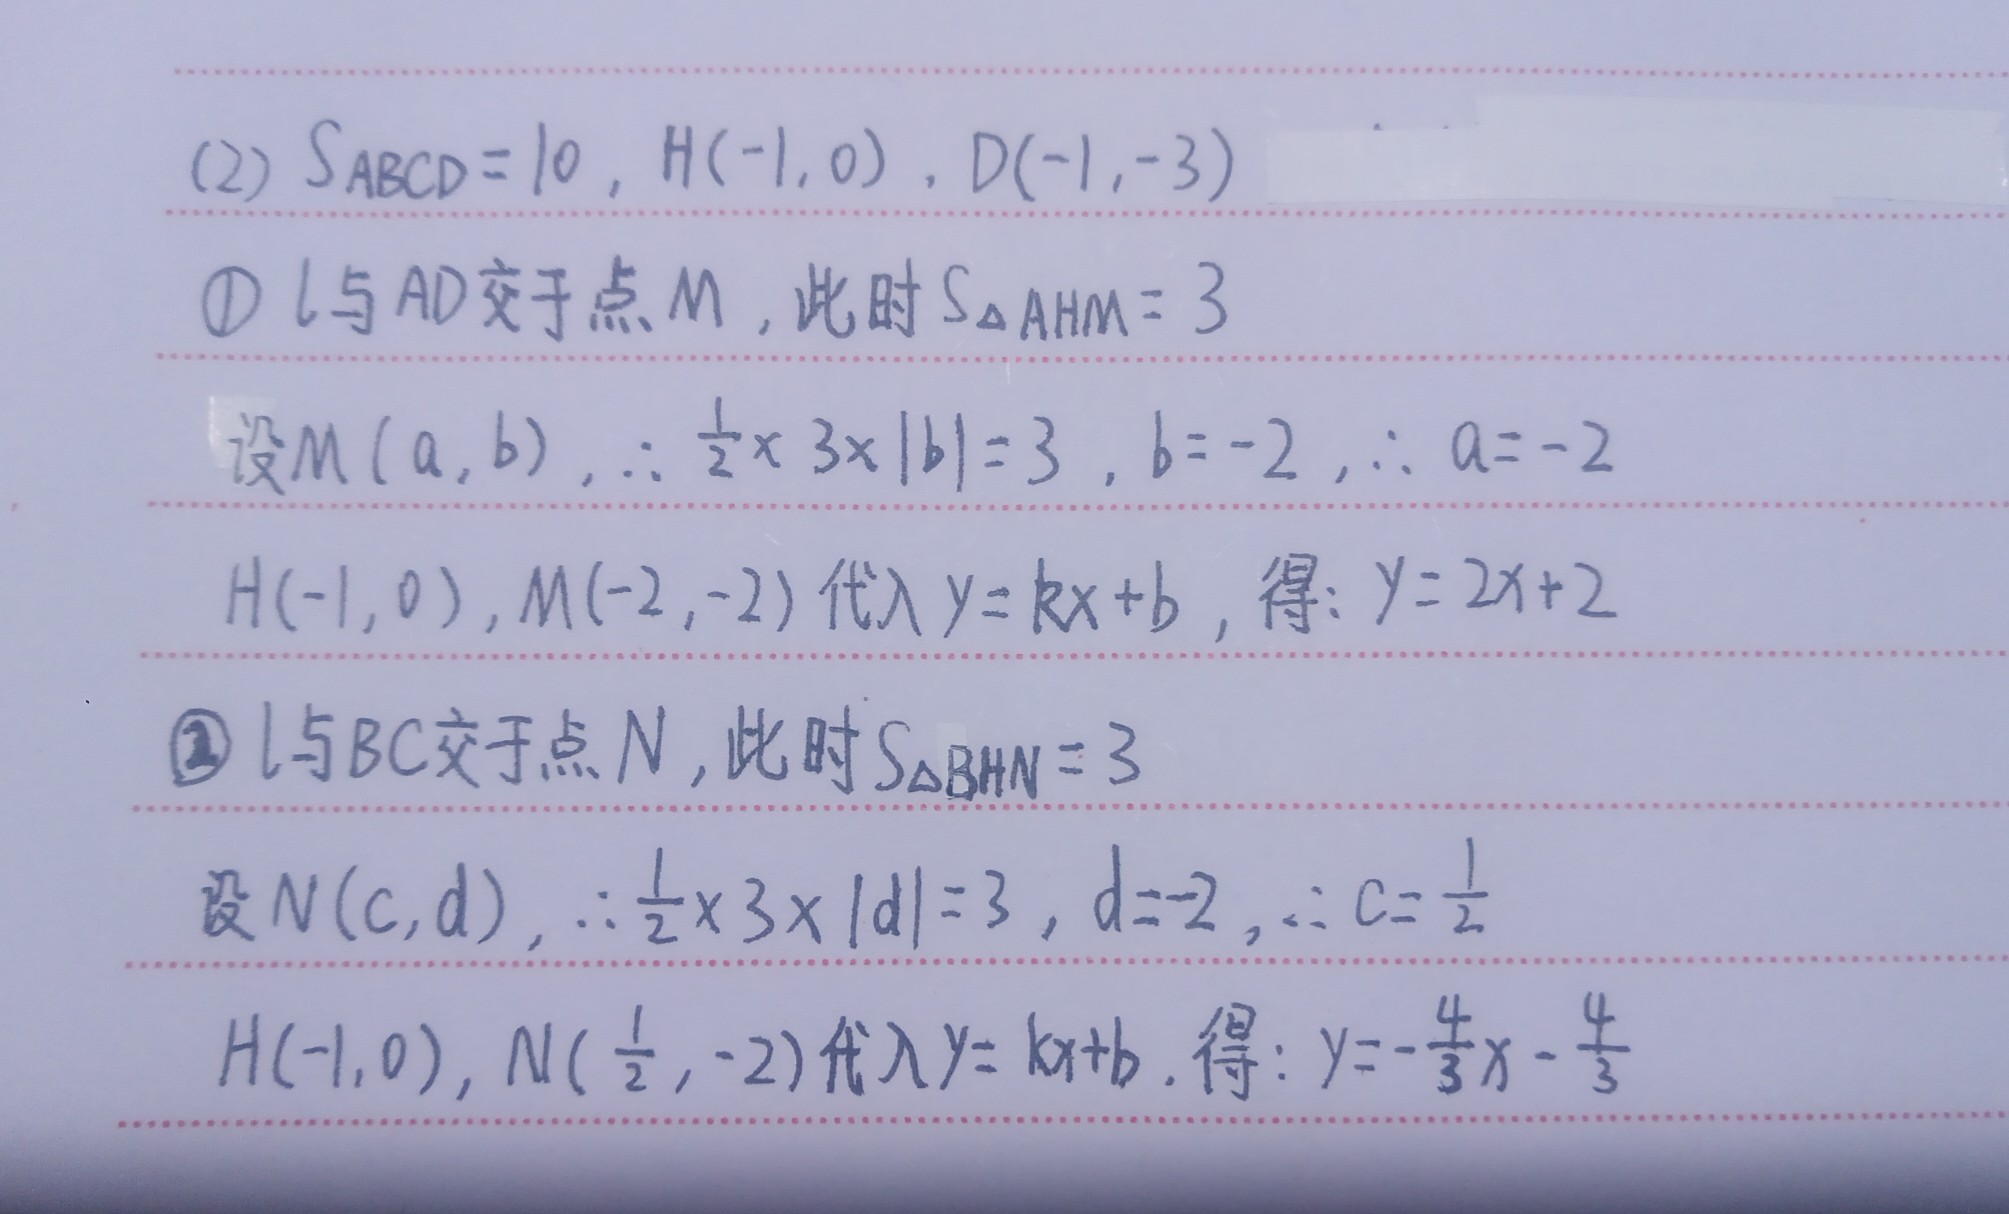 (2) SABCD=10, H(-1,0), D(-1,-3)
① l与AD交于点M,此时S△AHM=3
设M(a,b),∴ 1/2×3×|b|=3, b=-2,∴ a=-2
H(-1,0),M(-2,-2)代入y=kx+b,得:y=2x+2
② l与BC交于点N,此时S△BHN=3
设N(c,d),∴1/2×3×|d|=3, d=-2,∴ c=1/2
H(-1,0), N(1/2,-2)代入y=kx+b.得:y=-4/3x-4/3